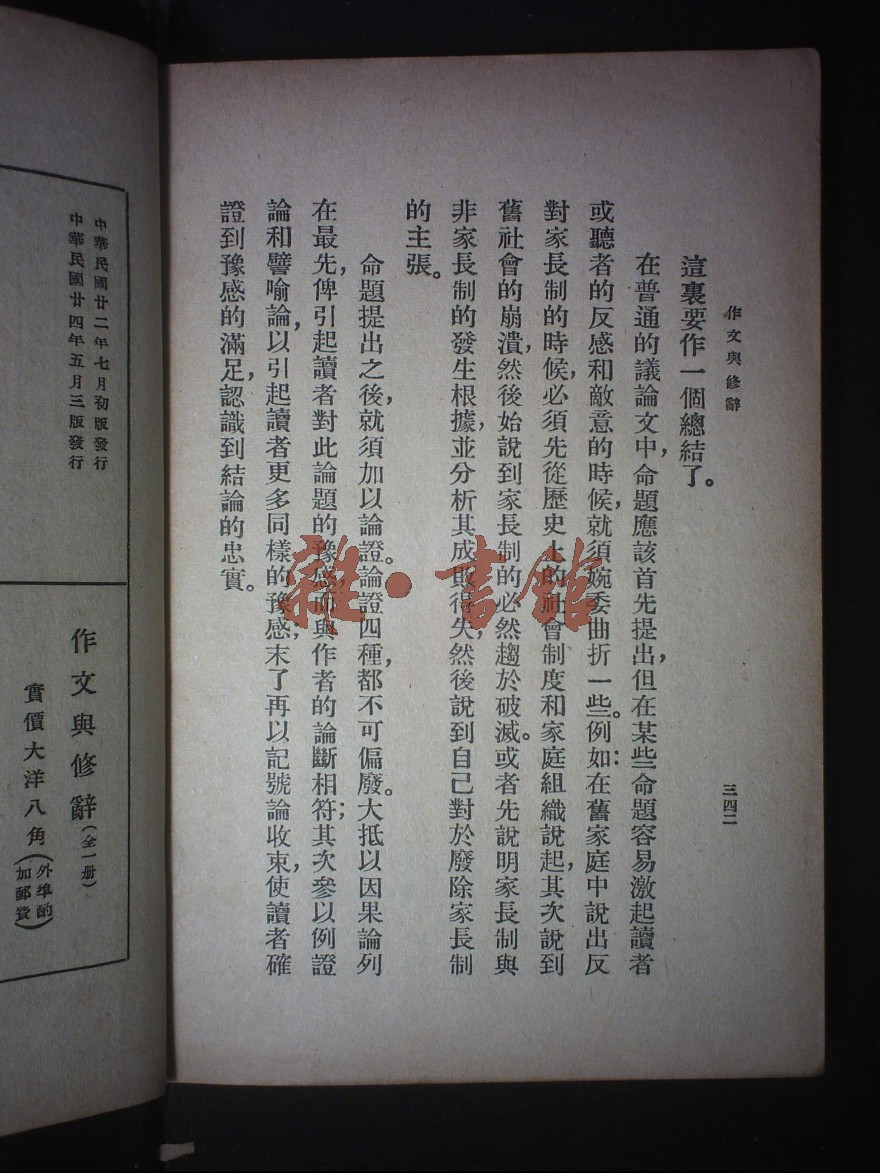 作文與修辭
三四二
這裏要作一個總結了。
在普通的議論文中，命題應該首先提出，但在某些命題容易激起讀者
或聽者的反感和敵意的時候，就須婉委曲折一些。例如：在舊家庭中說出反
對家長制的時候，必須先從歷史上的社會制度和家庭組織說起，其次說到
舊社會的崩潰，然後始說到家長制的必然趨於破滅。或者先說明家長制與
非家長制的發生根據，並分析其成敗得失，然後說到自己對於廢除家長制
的主張。
命題提出之後，就須加以論證。論證四種，都不可偏廢。大抵以因果論列
在最先，俾引起讀者對此論題的豫感，而與作者的論斷相符；其次參以例證
論和譬喻論，以引起讀者更多同樣的豫感；末了再以記號論收束，使讀者確
證到豫感的滿足，認識到結論的忠實。
雜·書館
中華民國廿二年七月初版發行
中華民國廿四年五月三版發行
作文與修辭（全一册）
實價大洋八角（外埠酌加郵費）